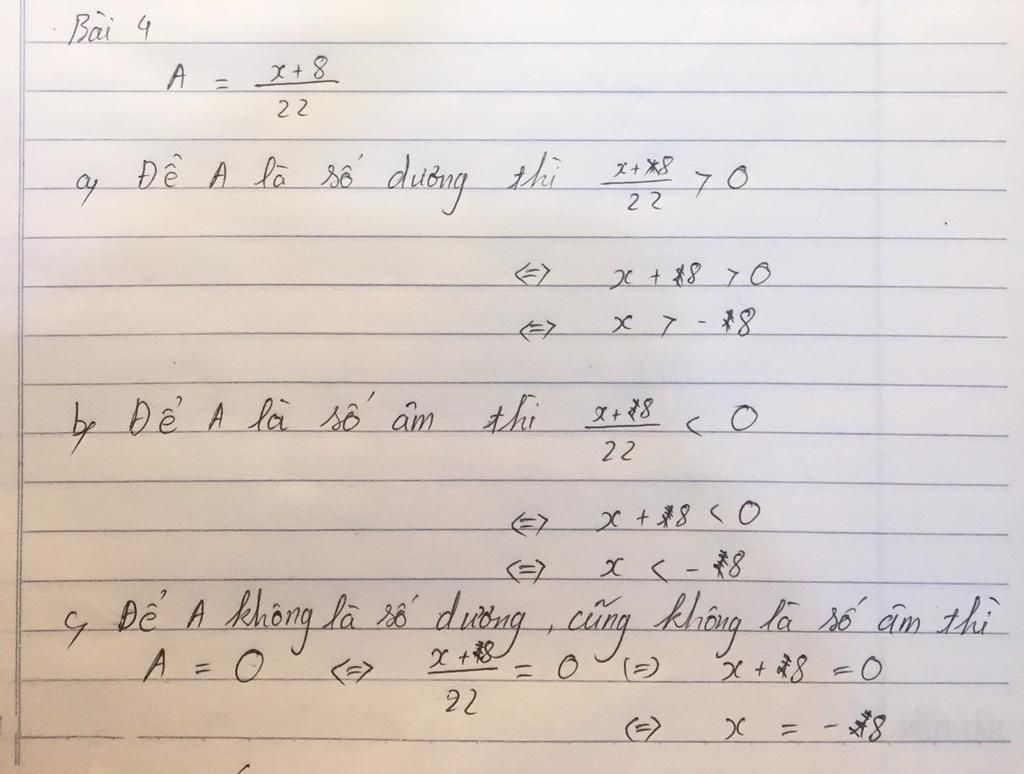 Bài 4
A = x+8/22
a, Để A là số dương thì x+8/22 > 0
<=> x + 8 > 0
<=> x > -8
b, Để A là số âm thì x+8/22 < 0
<=> x + 8 < 0
<=> x < -8
c, Để A không là số dương, cũng không là số âm thì
A = 0 <=> x+8/22 = 0 (=) x + 8 = 0
(=) x = -8